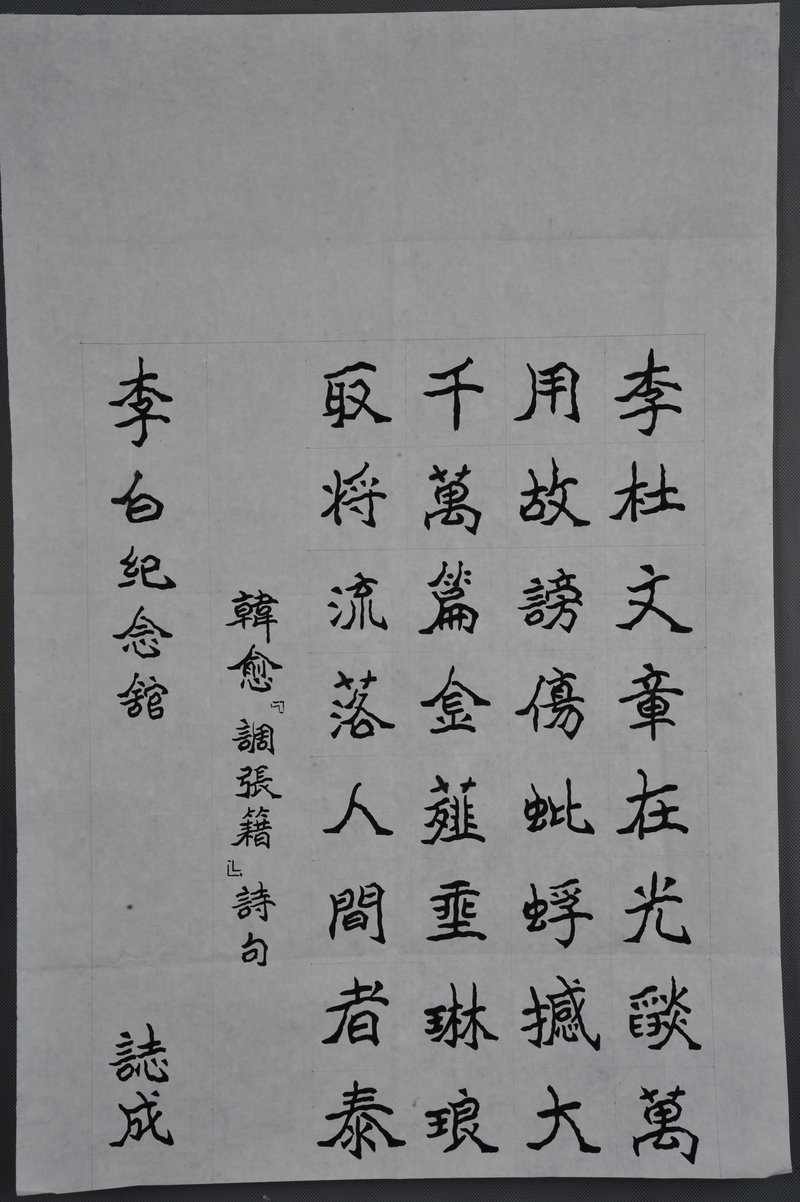 李杜文章在光燄萬
用故謗傷蚍蜉撼大
千萬篇金薤垂琳琅
取将流落人間者泰
韓愈『調張籍』詩句
李白纪念舘
誌成